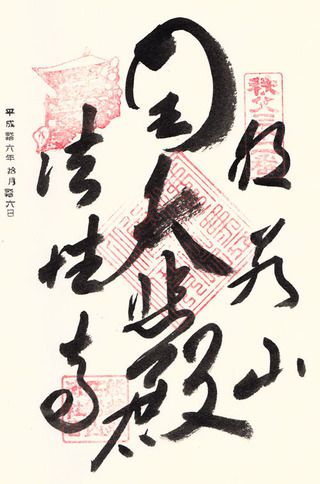 秩父三十二番
般若山
大悲殿
法性寺
平成拾六年拾月拾六日